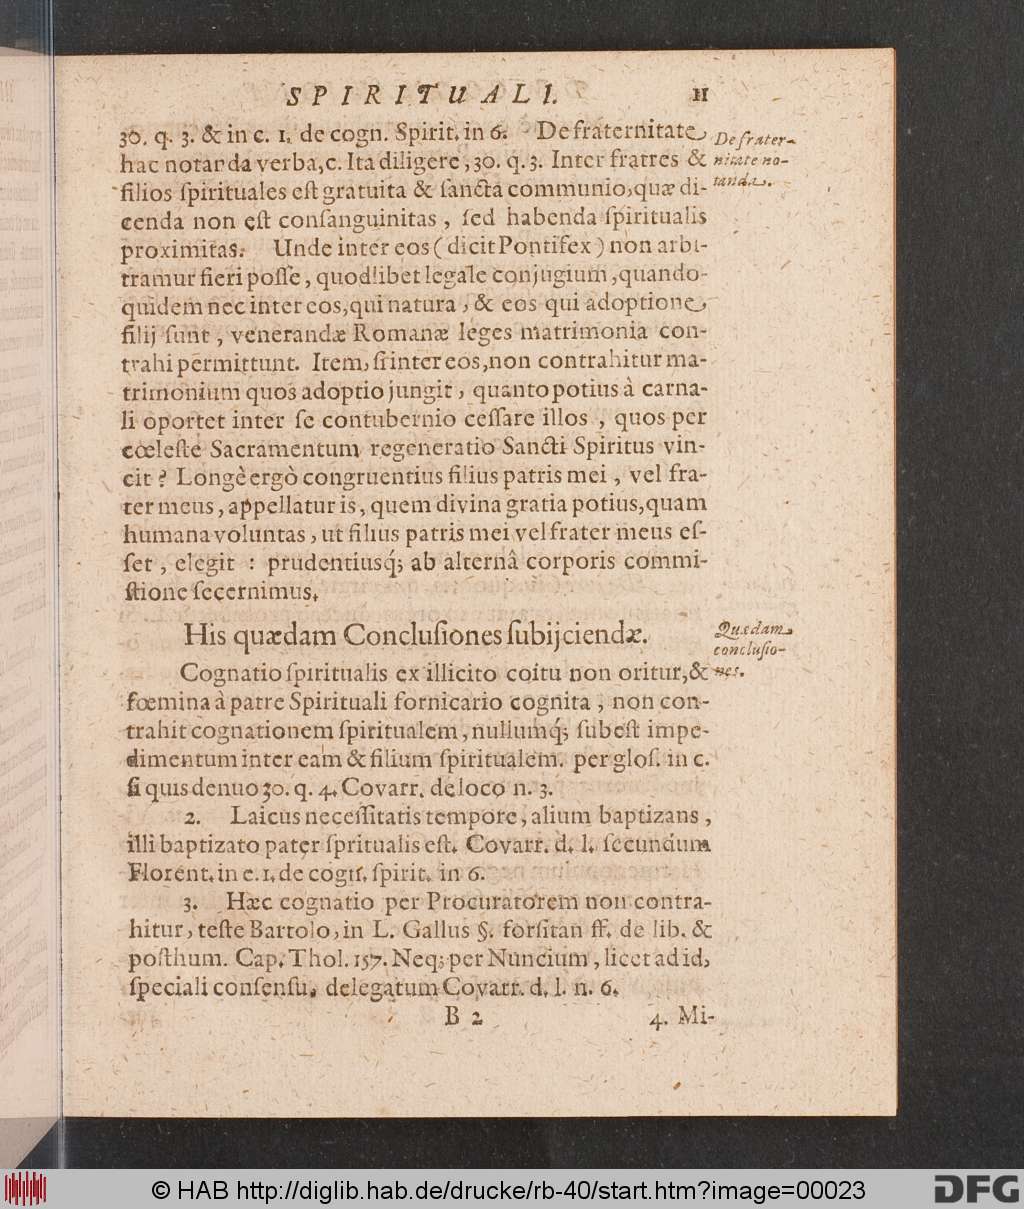 SPIRITUALI. 11
30. q. 3. & in c. 1. de cogn. Spirit. in 6. De fraternitate
hac notanda verba, c. Ita diligere, 30. q. 3. Inter fratres &
filios ſpirituales eſt gratuita & ſancta communio, quæ di-
cenda non eſt conſanguinitas, ſed habenda ſpiritualis
proximitas. Unde inter eos (dicit Pontifex) non arbi-
tramur fieri poſſe, quodlibet legale conjugium, quando-
quidem nec inter eos, qui natura, & eos qui adoptione
filij ſunt, venerandæ Romanæ leges matrimonia con-
trahi permittunt. Item, ſi inter eos, non contrahitur ma-
trimonium quos adoptio jungit, quanto potius à carna-
li oportet inter ſe contubernio ceſſare illos, quos per
cœleſte Sacramentum regeneratio Sancti Spiritus vin-
cit? Longè ergò congruentius filius patris mei, vel fra-
ter meus, appellatur is, quem divina gratia potius, quam
humana voluntas, ut filius patris mei vel frater meus eſ-
ſet, elegit: prudentiusq́; ab alternâ corporis commi-
ſtione ſecernimus.
De frater-
nitate no-
tanda.
His quædam Concluſiones ſubijciendæ.
Quædam
concluſio-
nes.
Cognatio ſpiritualis ex illicito coitu non oritur, &
fœmina à patre Spirituali fornicario cognita, non con-
trahit cognationem ſpiritualem, nullumq́; ſubeſt impe-
dimentum inter eam & filium ſpiritualem. per gloſ. in c.
ſi quis denuo 30. q. 4. Covarr. de loco n. 3.
2. Laicus neceſſitatis tempore, alium baptizans,
illi baptizato pater ſpritualis eſt. Covarr. d. l. ſecundum
Florent. in c. 1. de cogn. ſpirit. in 6.
3. Hæc cognatio per Procuratorem non contra-
hitur, teſte Bartolo, in L. Gallus §. forſitan ff. de lib. &
poſthum. Cap. Thol. 157. Neq; per Nuncium, licet ad id,
ſpeciali conſenſu, delegatum Covarr. d. l. n. 6.
B 2 4. Mi-
© HAB http://diglib.hab.de/drucke/rb-40/start.htm?image=00023
DFG